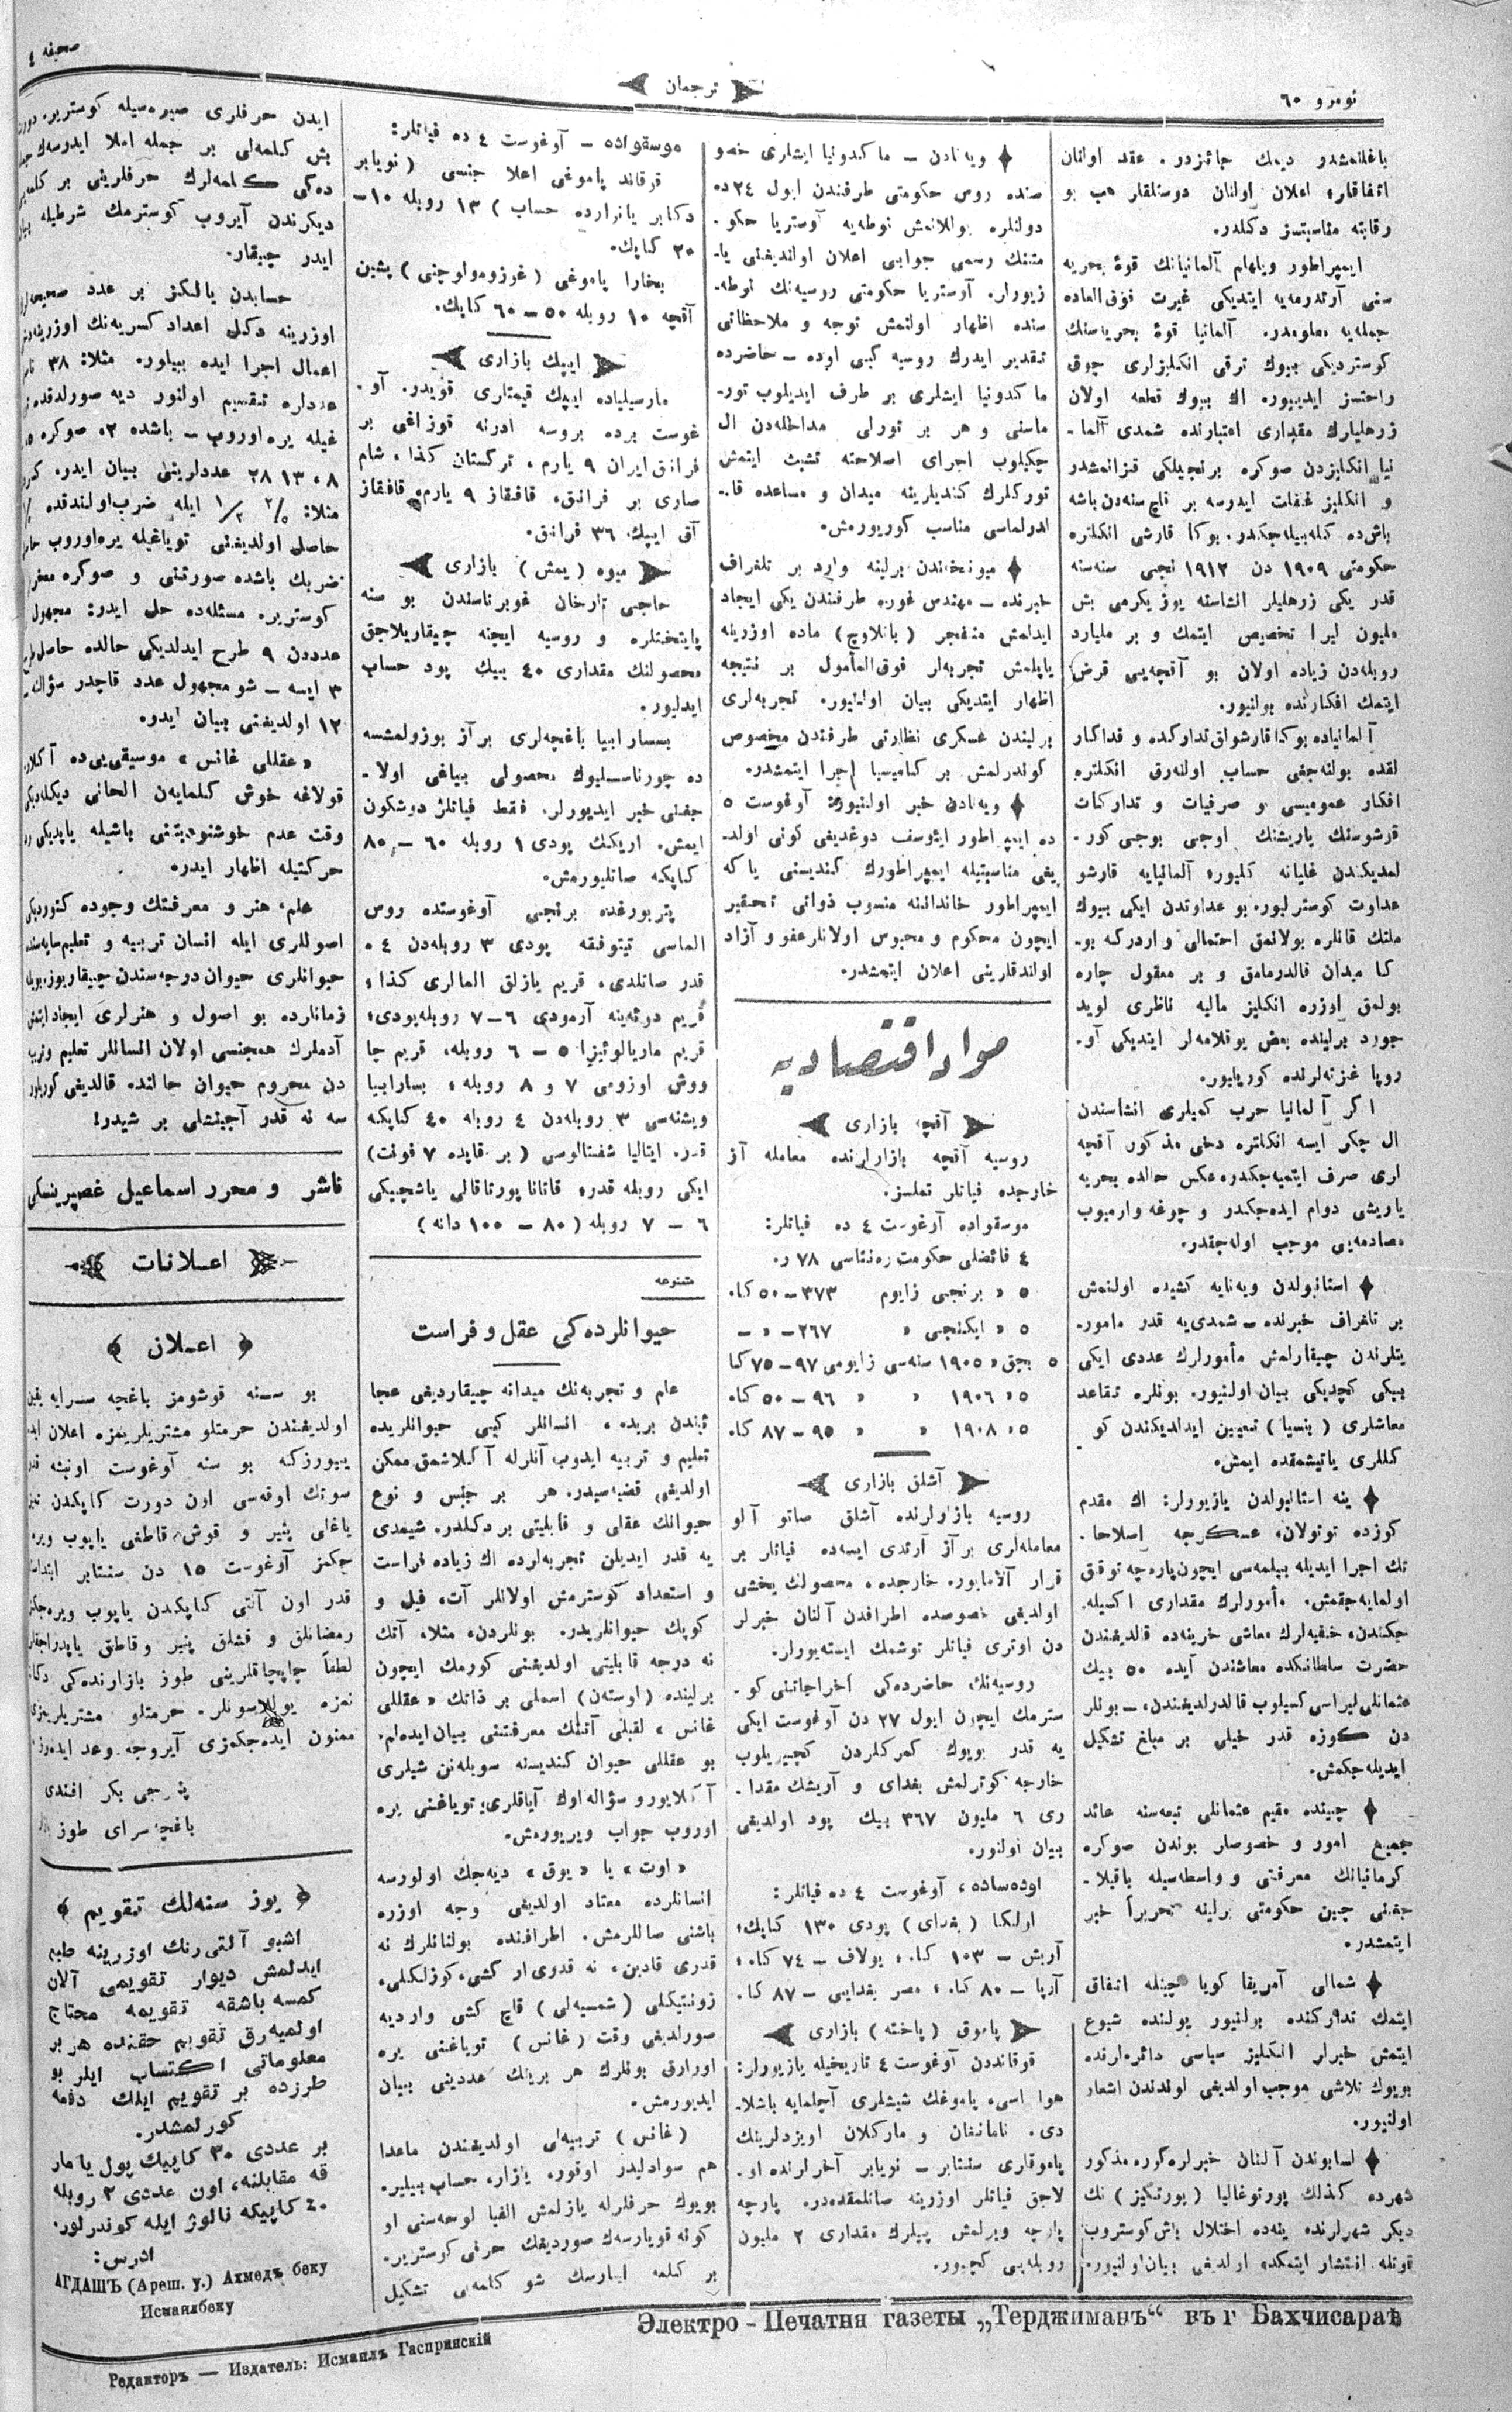 نومرو ٦٠
ترجمان
صحیفه ٤
باغلانمشدر دیمك جائزدر. عقد اولنان
اتفاقلر، اعلان اولنان دوستلقلر هب بو
رقابته مناسبتسز دكلدر.
ایمپراطور ویلهلم آلمانیانك قوۀ بحریه
سنی آرتدرمه‌یه ایتدیكی غیرت فوق‌العاده
جمله‌یه معلومدر. آلمانیا قوۀ بحریه‌سنك
كوستردیكی بیوك ترقی انكلیزلری چوق
راحتسز ایدییور. اك بیوك قطعه اولان
زرهلیلرك مقداری اعتبارنده شمدی آلما-
نیا انكلیزدن صوكره برنجیلكی قزانمشدر
و انكلیز غفلت ایدرسه بر قاچ سنه‌دن باشه
باش‌ده كله‌بیله‌جكدر. بوكا قارشی انكلتره
حكومتی ١٩٠٩ دن ١٩١٢ نجی سنه‌سنه
قدر یكی زرهلیلر انشاسنه یوز یكرمی بش
ملیون لیرا تخصیص ایتمك و بر ملیارد
روبله‌دن زیاده اولان بو آقچه‌یی قرض
ایتمك افكارنده بولنیور.
آلمانیاده بوكا قارشو تداركده و فداكار
لقده بولنه‌جغی حساب اولنه‌رق انكلتره
افكار عمومیسی و صرفیات و تداركات
قرشوسنك یاریشنك اوجی بوجی كور-
لمدیكندن غلیانه كلیور، آلمانیایه قارشو
عداوت كوسترلیور. بو عداوتدن ایكی بیوك
ملتك قانلره بولانمق احتمالی واردركه بو-
كا میدان قالدرمامق و بر معقول چاره
بولمق اوزره انكلیز مالیه ناظری لوید
جورد برلینده بعض یوقلامه‌لر ایتدیكی آو-
روپا غزته‌لرنده كوریلیور.
اكر آلمانیا حرب كمیلری انشاسندن
ال چكر ایسه انكلتره دخی مذكور آقچه
لری صرف ایتمیه‌جكدر، عكس حالده بحریه
یاریشی دوام ایده‌جكدر و چوغه وارمیوب
مصادمه‌یی موجب اوله‌جقدر.
استانبولدن ویه‌نایه كشیده اولنمش
بر تلغراف خبرنده – شمدی‌یه قدر مامور-
یتلرندن چیقارلمش مأمورلرك عددی ایكی
بیكی كچدیكی بیان اولنیور. بونلره تقاعد
معاشلری (پنسیا) تعیین ایدلدیكندن كو
كللری یاتیشمقده ایمش.
ینه استانبولدن یازیورلر: اك مقدم
كوزده توتولان، عسكرجه اصلاحا-
تك اجرا ایدیله بیلمه‌سی ایچون پارەچه توقف
اولمایه‌جقمش. مأمورلرك مقداری اكسیله-
جكندن، خفیه‌لرك معاشی خزینه‌ده قالدیغندن
حضرت سلطانكده معاشندن آیده ٥٠ بیك
عثمانلی لیراسی كسیلوب قالدرلدیغندن، – بونلر
دن كوزه قدر خیلی بر مبلغ تشكیل
ایدیله‌جكمش.
چینده مقیم عثمانلی تبعه‌سنه عائد
جمیع امور و خصوصلر بوندن صوكره
كرمانیانك معرفتی و واسطه‌سیله باقیلا-
جغنی چین حكومتی برلینه تحریراً خبر
ایتمشدر.
شمالی آمریقا كویا چینله اتفاق
ایتمك تداركنده بولنیور یولنده شیوع
ایتمش خبرلر انكلیز سیاسی دائره‌لرنده
بویوك تلاشی موجب اولدیغی لوندندن اشعار
اولنیور.
لسابوندن آلنان خبرلره كوره مذكور
شهرده كذلك پورتوغالیا (پورتكیز) نك
دیكر شهرلرنده ینه‌ده اختلال باش كوستروب
قوتله انتشار ایتمكده اولدیغی بیان اولنیور.
ویه‌نادن – ماكدونیا ایشلری خصو
صنده روس حكومتی طرفندن ایول ٢٤ ده
دولتلره یوللانمش نوطه‌یه آوستریا حكو-
متنك رسمی جوابی اعلان اولندیغنی یا-
زیورلر. آوستریا حكومتی روسیه‌نك نوطه-
سنده اظهار اولنمش توجه و ملاحظاتی
تقدیر ایدرك روسیه كبی اوده – حاضرده
ماكدونیا ایشلری بر طرف ایدیلوب تور-
ماسنی و هر بر تورلی مداخله‌دن ال
چكیلوب اجرای اصلاحته تشبث ایتمش
توركلرك كندیلرینه میدان و مساعده قا-
لدرلماسی مناسب كوریورمش.
میونخندن برلینه وارد بر تلغراف
خبرنده – مهندس غوره طرفندن یكی ایجاد
ایدلمش منفجر (پاتلاوچ) ماده اوزرینه
یاپلمش تجربه‌لر فوق‌المأمول بر نتیجه
اظهار ایتدیكی بیان اولنیور. تجربه‌لری
برلیندن عسكری نظارتی طرفندن مخصوص
كوندرلمش بر كامیسیا اجرا ایتمشدر.
ویه‌نادن خبر اولنیور: آوغوست ٥
ده ایمپراطور ایئوسف دوغدیغی كونی اولد-
یغی مناسبتیله ایمپراطورك كندیسنی یا كه
ایمپراطور خاندانه منسوب ذواتی تحقیر
ایچون محكوم و محبوس اولانلر عفو و آزاد
اولندقلرینی اعلان ایتمشدر.
مواد اقتصادیه
آقچه بازاری
روسیه آقچه بازارلرنده معامله آز
خارجده فیاتلر تملسز.
موسقواده آوغوست ٤ ده فیاتلر:
٤ فائضلی حكومت رەنتاسی ٧٨ ر.
٥ « برنجی زایوم ٣٧٣ – ٥٠ كا.
٥ « ایكنجی « ٢٦٧ – « –
٥ بچق « ١٩٠٥ سنه‌سی زایومی ٩٧ – ٧٥ كا
٥ « ١٩٠٦ « « ٩٦ – ٥٠ كا.
٥ « ١٩٠٨ « « ٩٥ – ٨٧ كا.
آشلق بازاری
روسیه بازارلرنده آشلق صاتو آلو
معامله‌لری بر آز آرتدی ایسه‌ده فیاتلر بر
قرار آلامایور. خارجده، محصولك یخشی
اولدیغی خصوصده اطرافدن آلنان خبرلر
دن اوتری فیاتلر توشمك ایسته‌یورلر.
روسیه‌نك حاضرده‌كی اخراجاتنی كو-
سترمك ایچون ایول ٢٧ دن آوغوست ایكی
یه قدر بویوك كمركلردن كچیریلوب
خارجه كوترلمش بغدای و آریشك مقدا-
ری ٦ ملیون ٣٦٧ بیك پود اولدیغی
بیان اولنور.
اوده‌ساده، آوغوست ٤ ده فیاتلر:
اولكا (بغدای) پودی ١٣٠ كاپك؛
آریش – ١٠٣ كا.؛ یولاف – ٧٤ كا.؛
آرپا – ٨٠ كا.؛ مصر بغدایی – ٨٧ كا.
پاموق (پاخته) بازاری
قوقاندن آوغوست ٤ تاریخیله یازیورلر:
هوا اسی، پاموغك شیشلری آچلمایه باشلا-
دی. نامانغان و ماركلان اویزدلرینك
پاموقلری سنتابر – نویابر آخرلرنده او-
لاجق فیاتلر اوزرینه صاتلمقده‌در. پارچه
پارچه ویرلمش پیلرك مقداری ٢ ملیون
روبله‌یی كچیور.
موسقواده – آوغوست ٤ ده فیاتلر:
فرقاند پاموغی اعلا جنسی (نویابر
دكابر یانوارده حساب) ١٣ روبله ١٠ –
٢٠ كاپك.
بخارا پاموغی (غوزومولوچنی) پشین
آقچه ١٠ روبله ٥٠ – ٦٠ كاپك.
ایپك بازاری
مارسیلیاده ایپك قیمتلری قویدر. آو-
غوست برده بروسه ادرنه قوزاغی بر
فرانق ایران ٩ یارم، تركستان كذا، شام
صاری بر فرانق، قافقاز ٩ یارم، قافقاز
آق ایپك ٣٦ فرانق.
میوه (یمش) بازاری
حاجی تارخان غوبرناسندن بو سنه
پایتختلره و روسیه ایچنه چیقاریلاجق
محصولنك مقداری ٤٠ بیك پود حساب
ایدلیور.
بسسارابیا باغچه‌لری بر آز بوزولمشسه
ده چورناسلیوك محصولی بیاغی اولا-
جغنی خبر ایدیورلر. فقط فیاتلر دوشكون
ایمش. اریكك پودی ١ روبله ٦٠ – ٨٠
كاپكه صاتلیورمش.
پتربورغده برنجی آوغوستده روس
الماسی تیتوفقه پودی ٣ روبله‌دن ٤ ه
قدر صاتلدی، قریم یازلق المالری كذا؛
قریم دوشه‌ینه آرمودی ٦ – ٧ روبله‌پودی؛
قریم ماریالوئیزا ٥ – ٦ روبله، قریم چا
ووش اوزومی ٧ و ٨ روبله؛ بسارابیا
ویشنه‌سی ٣ روبله‌دن ٤ روبله ٤٠ كاپكه
قدر، ایتالیا شفتالوسی (بر قاپده ٧ فونت)
ایكی روبله قدر؛ قاتانا پورتاقالی یاشچیكی
٦ – ٧ روبله (٨٠ – ١٠٠ دانه)
متنوعه
حیوانلرده‌كی عقل و فراست
علم و تجربه‌نك میدانه چیقاردیغی عجا
ئبدن بریده، انسانلر كبی حیوانلریده
تعلیم و تربیه ایدوب آنلرله آكلاشمق ممكن
اولدیغی قضیه‌سیدر. هر بر جنس و نوع
حیوانك عقلی و قابلیتی بر دكلدر. شیمدی
یه قدر ایدیلن تجربه‌لرده اك زیاده فراست
و استعداد كوسترمش اولانلر آت، فیل و
كوپك حیوانلریدر. بونلردن، مثلا، آتك
نه درجه قابلیتی اولدیغنی كورمك ایچون
برلینده (اوستەن) اسملی بر ذاتك «عقللی
غانس» لقبلی آتنك معرفتنی بیان ایده‌لم.
بو عقللی حیوان كندیسنه سویله‌نن شیلری
آكلایور و سؤاله اوك آیاقلری، تویاغنی یره
اوروب جواب ویریورمش.
«اوت» یا «یوق» دیه‌جك اولورسه
انسانلرده معتاد اولدیغی وجه اوزره
باشنی صاللرمش. اطرافنده بولنانلرك نه
قدری قادین، نه قدری ار كشی، كوزلكلی،
زونتیكلی (شمسیه‌لی) قاچ كشی وار دیه
صورلدیغی وقت (غانس) تویاغنی یره
اورارق بونلرك هر برینك عددینی بیان
ایدیورمش.
(غانس) تربیه‌لی اولدیغندن ماعدا
هم سوادلیدر اوقور، یازار، حساب بیلیر.
بویوك حرفلرله یازلمش الفبا لوحه‌سنی او
كونه قویارسه‌ك صوردیغك حرفی كوستریر.
بر كلمه ایلرسك شو كلمه‌یی تشكیل
ایدن حرفلری صیره‌سیله كوستریر. دورت
بش كلمه‌لی بر جمله املا ایدرسه‌ك
ده‌كی كلمه‌لرك حرفلرینی بر
دیكرندن آیروب كوسترمك شرطیله
ایدر چیقار.
حسابدن یالكز بر عدد صحیحه‌لر
اوزرینه دكل اعداد كسریه‌نك اوزرینه
اعمال اجرا ایده بیلور. مثلا: ٣٨
عددلره تقسیم اولنور دیه صورلدقده
غیله یره اوروب – باشده ٢، صوكره
٨، ١٣، ٢٨ عددلرینی بیان ایدر.
ایله ضرب اولندقده
حاصل اولدیغنی تویاغیله یره اوروب
ضربك باشده صورتنی و صوكره
كوستریر. مسئله‌ده حل ایدر: مجهول
عدددن ٩ طرح ایدلدیكی حالده حاصل
٣ ایسه – شو مجهول عدد قاچدر سؤالك
١٢ اولدیغنی بیان ایدر.
«عقللی غانس» موسیقی‌یی‌ده آكلار.
قولاغه خوش كلمایه‌ن الحانی دیكله‌دیكی
وقت عدم خوشنودیتنی باشیله یاپدیكی
حركتیله اظهار ایدر.
علم، هنر و معرفتك وجوده كتوردیكی
اصوللری ایله انسان تربیه و تعلیم سایه‌سنده
حیوانلری حیوان درجه‌سندن چیقاریوز. بویله
زمانلرده بو اصول و هنرلری ایجاد ایتمش
آدملرك همجنسی اولان انسانلر تعلیم و تربیه
دن محروم حیوان حالنده قالدیغی كوریلور
سه نه قدر آجینشلی بر شیدر!
ناشر و محرر اسماعیل غصپرینسكی
اعلانات
اعلان
بو سنه قوشومز باغچه سرایه یقین
اولدیغندن حرمتلو مشتریلریمزه اعلان
ییورزكه بو سنه آوغوست اونبشه قدر
سوتك اوقه‌سی اون دورت كاپكدن
یاغلی پنیر و قوش قاطغی یاپوب ویره
جكمز آوغوست ١٥ دن سنتابر
قدر اون آلتی كاپكدن یاپوب ویره‌جكمز
رمضانلق و قشلق پنیر و قاطق
لطفاً چاپچاقلرینی طوز بازارنده‌كی
نمزه یوللاسونلر. حرمتلو مشتریلریمزی
ممنون ایده‌جكمزی آیروجه وعد ایدەرز.
پنرجی بكر افندی
باغچه سرای طوز
یوز سنه‌لك تقویم
اشبو آلتی رنك اوزرینه طبع
ایدلمش دیوار تقویمی آلان
كمسه باشقه تقویمه محتاج
اولمیه‌رق تقویم حقنده هر بر
معلوماتی اكتساب ایلر بو
طرزده بر تقویم ایلك دفعه
كورلمشدر.
بر عددی ٣٠ كاپیك پول یا مار
قه مقابلنه، اون عددی ٢ روبله
٤٠ كاپیكه نالوژ ایله كوندرلور.
ادرس:
АГДАШЪ (Ареш. у.) Ахмедъ беку
Исмаилбеку
Электро - Печатня газеты „Терджиманъ“ въ г Бахчисараѣ
Редакторъ — Издатель: Исмаилъ Гаспринскій